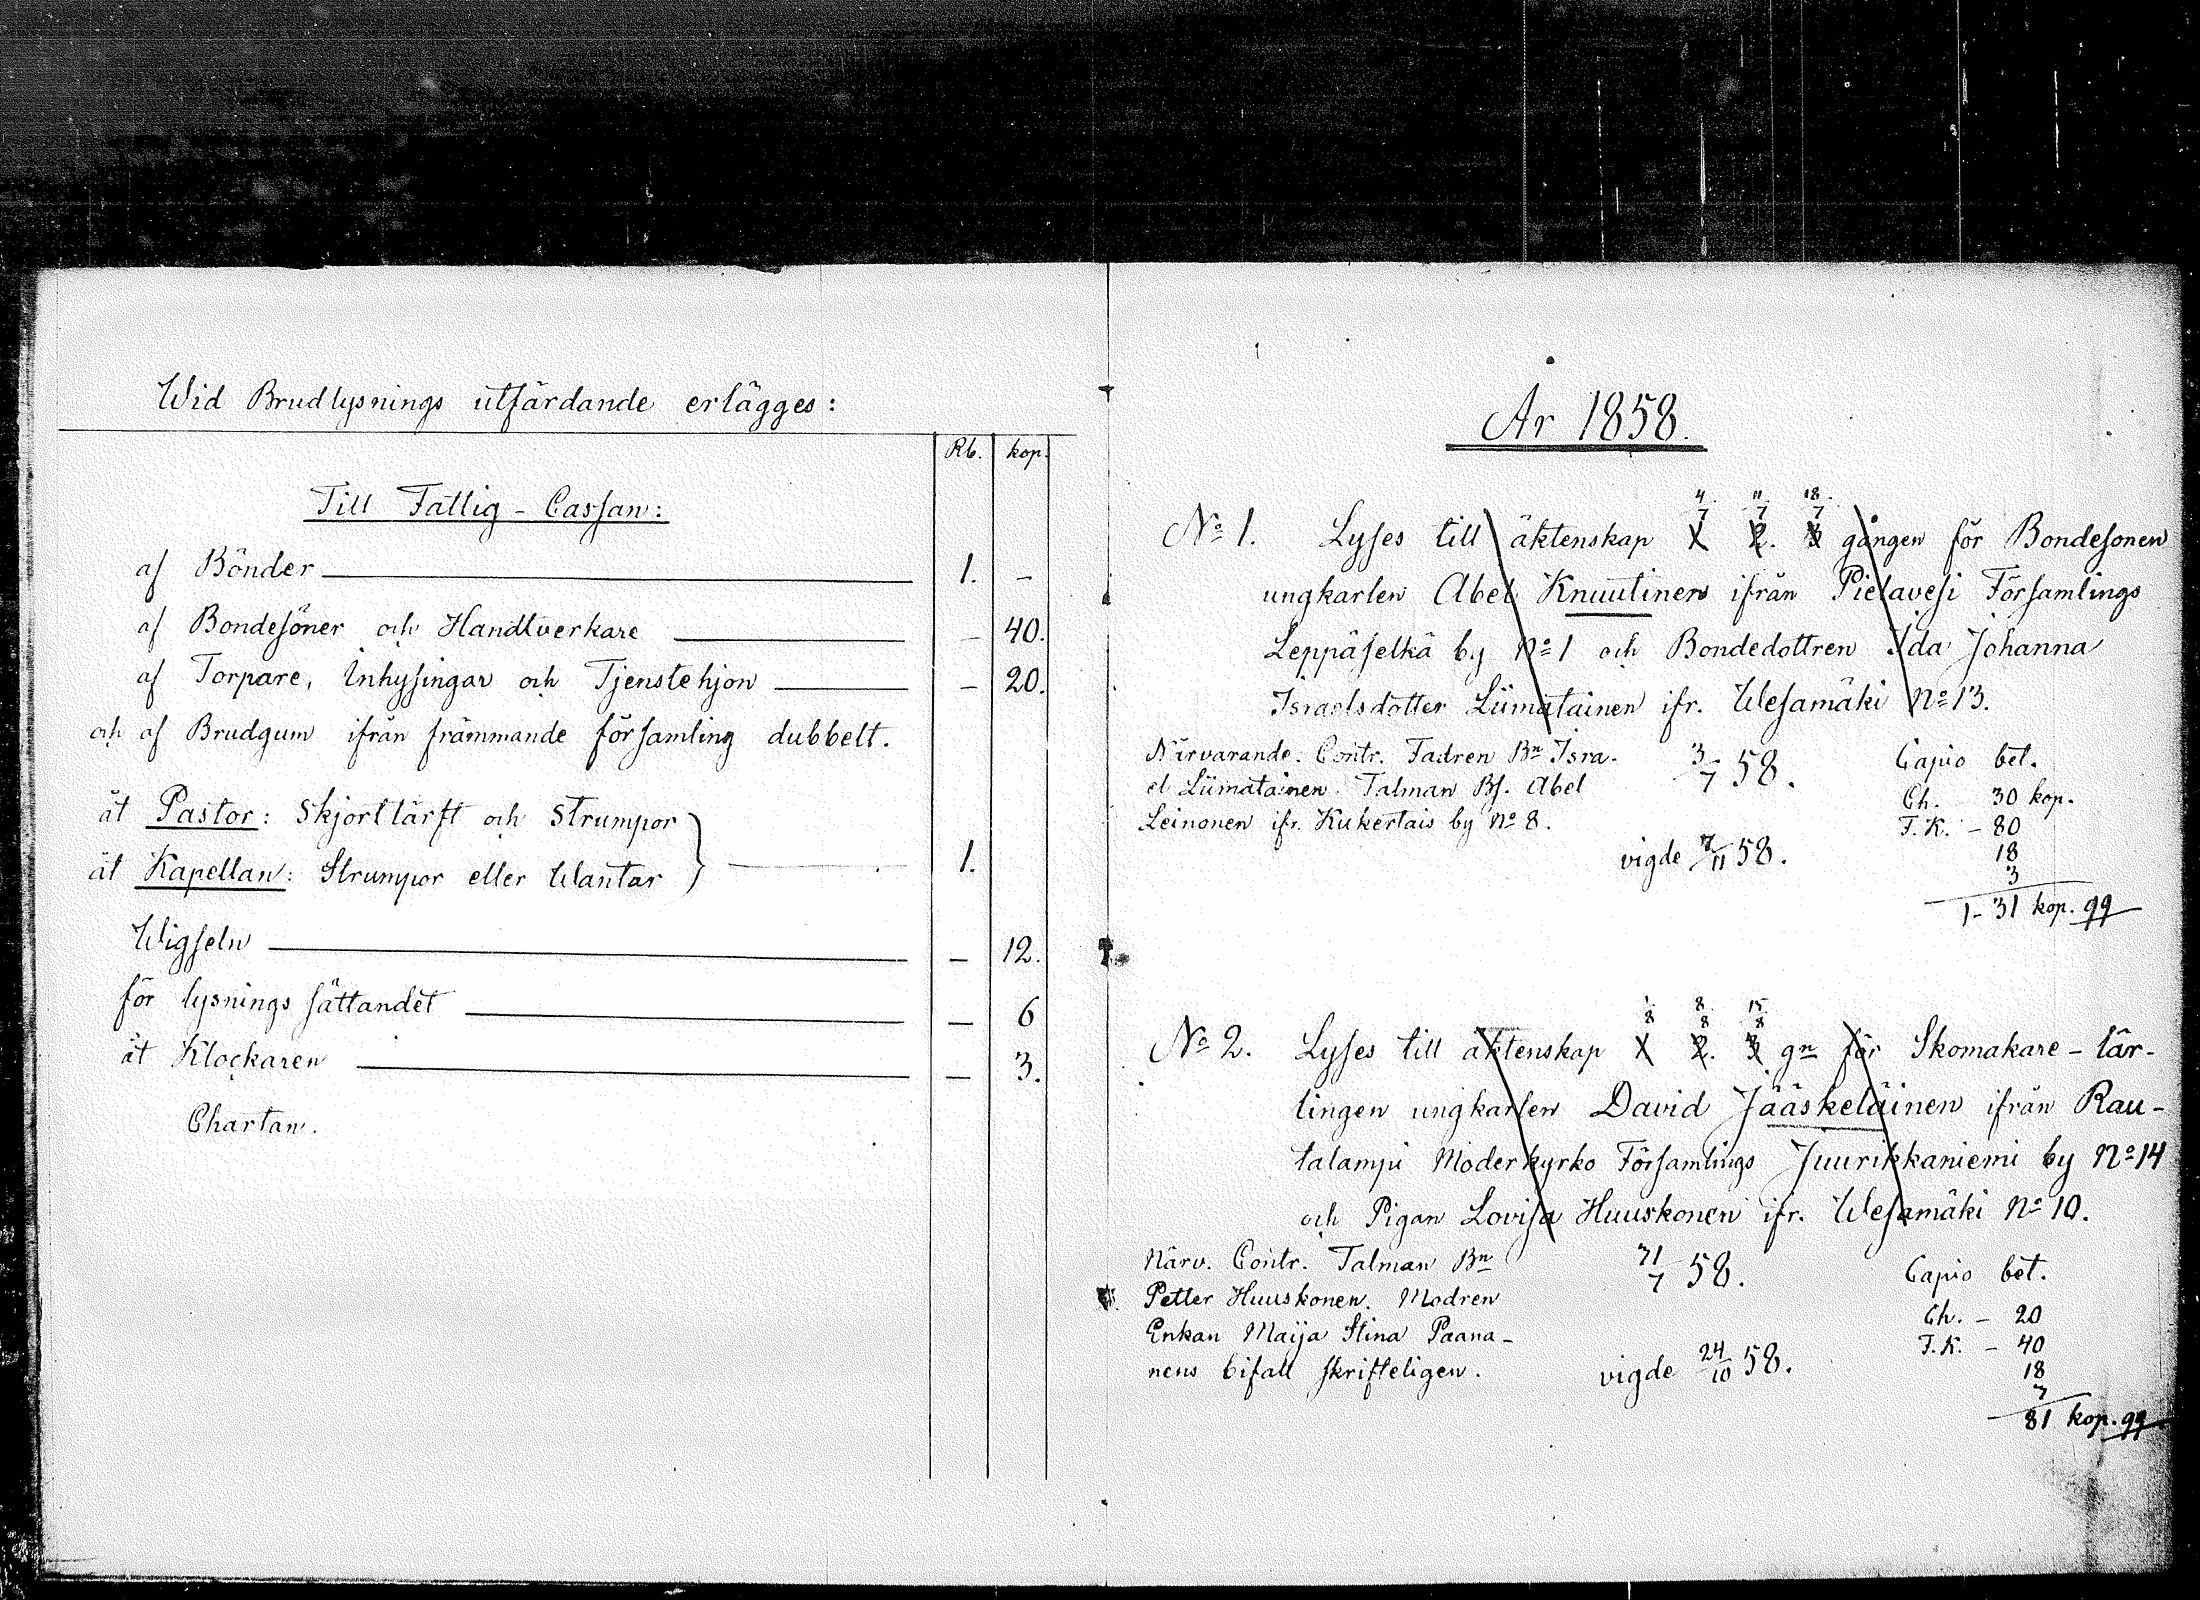 Wid Brudlysnings utfärdande erlägges:
Rb. kop.
Till Fattig-Cassan:
af Bönder 1. -
af Bondesöner och Handtverkare - 40.
af Torpare, Inhysingar och Tjenstehjon - 20.
och af Brudgum ifrån främmande församling dubbelt.
åt Pastor: Skjortlärft och Strumpor
åt Kapellan: Strumpor eller Wantar } 1.
Wigseln - 12.
för lysnings sättandet - 6
åt Klockaren - 3.
Chartan.
År 1858.
4/7 11/7 18/7
No 1. Lyses till äktenskap 1 2. 3 gången för Bondesonen
ungkarlen Abel Knuutinen ifrån Pielavesi Församlings
Leppäselkä by No 1 och Bondedottren Ida Johanna
Israelsdotter Liimatainen ifr. Wesamäki No 13.
Närvarande. Contr. Fadren Bn Isra-
el Liimatainen. Talman Bs. Abel
Leinonen ifr. Kukertais by No 8.
3/7 58.
vigde 7/11 58.
Capio bet.
Ch. 30 kop.
F.K. - 80
18
3
1- 31 kop. qq
1/8 8/8 15/8
No 2. Lyses till äktenskap 1 2. 3 gn för Skomakare-lär-
lingen ungkarlen David Jääskeläinen ifrån Rau-
talampi Moderkyrko Församlings Juurikkaniemi by No 14
och Pigan Lovisa Huuskonen ifr. Wesamäki No 10.
Närv. Contr. Talman Bn
Petter Huuskonen. Modren
Enkan Maija Stina Paana-
nens bifall skrifteligen.
31/7 58.
vigde 24/10 58.
Capio bet.
Ch. - 20
F.K. - 40
18
3
81 kop. qq